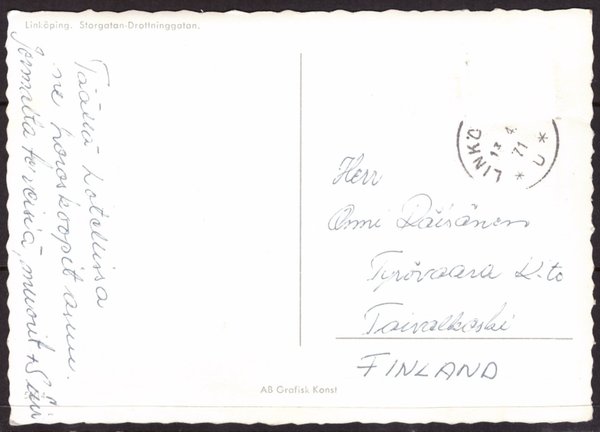 Linköping. Storgatan-Drottninggatan.
Täällä hotellissa
ne horoskoopit asuu.
terveisiä, muorit +
LINKÖ
13 4
71
* U *
Herr
Onni Räisänen
Tyrövaara K.to
Taivalkoski
FINLAND
AB Grafisk Konst